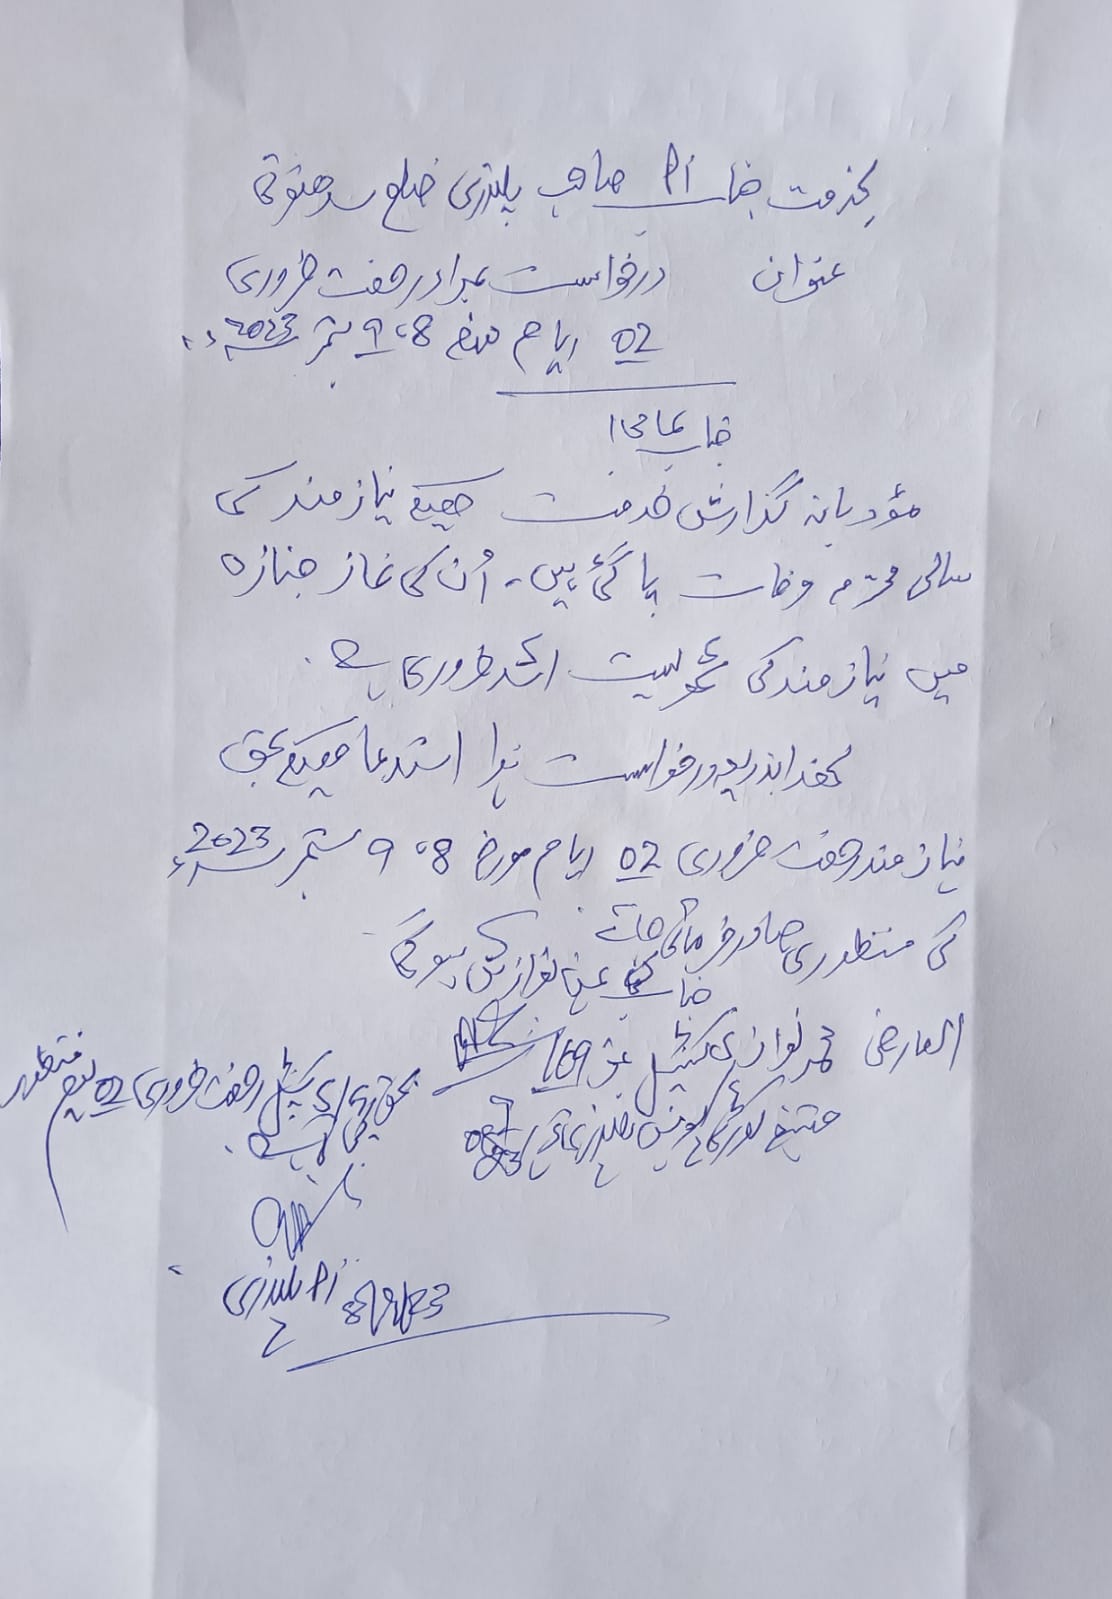 بخدمت جناب PI صاحب پلندری ضلع سدھنوتی
عنوان درخواست بمراد رخصت ضروری
02 ایام مورخہ 8، 9 ستمبر 2023ء
جناب عالی!
مؤدبانہ گذارش خدمت ہیکہ نیازمند کی
سالی محترمہ وفات پا گئی ہیں۔ اُن کی نماز جنازہ
میں نیازمند کی شمولیت اشد ضروری ہے۔
لھذا بذریعہ درخواست ہذا استدعا ہیکہ بحق
نیازمند رخصت ضروری 02 ایام مورخہ 8، 9 ستمبر 2023ء
کی منظوری صادر فرمائی جائے
جناب کی عین نوازش ہوگی
العارض محمد نواز کنسٹیبل نمبر 169
متعینہ پولیس پلندری
رخصت ضروری 02 یوم منظور
ہے۔
PI پلندری
8/9/23